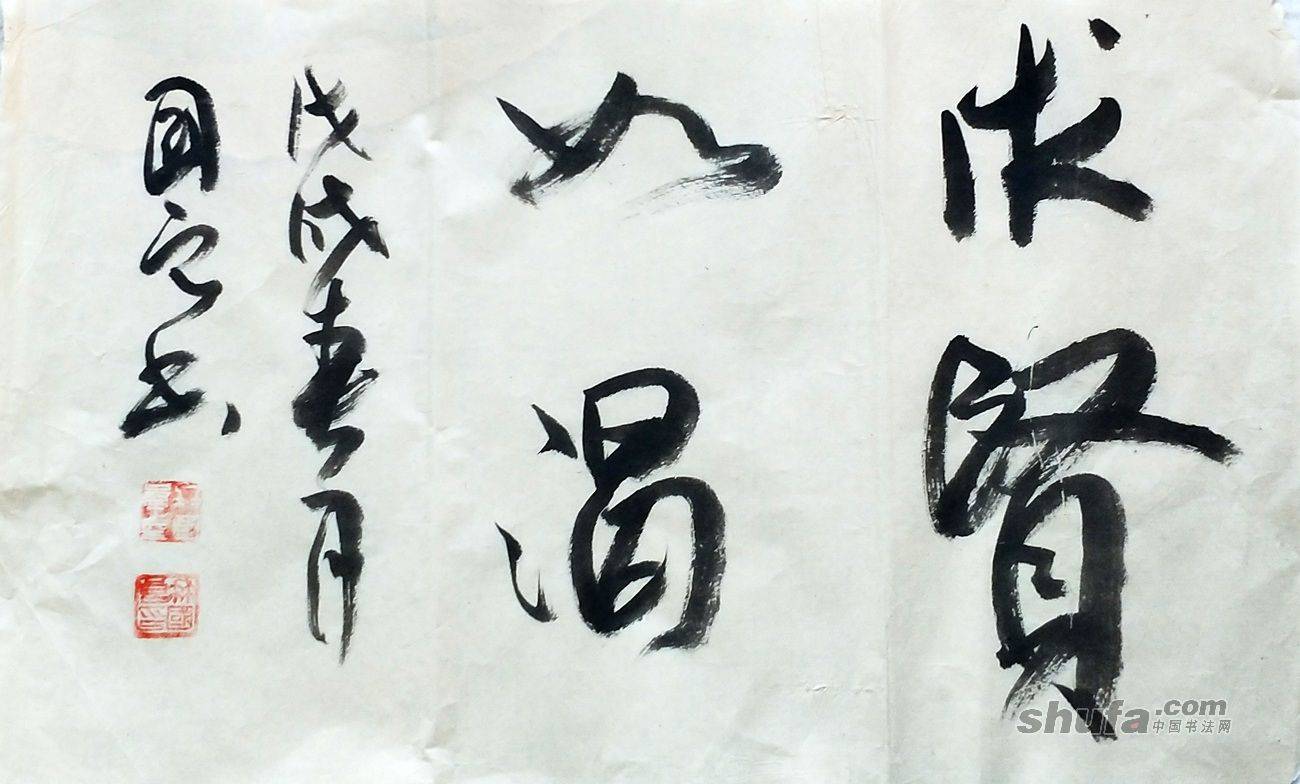 求賢
如渴
戊戌春月
國定书
shufa.com
中国书法网